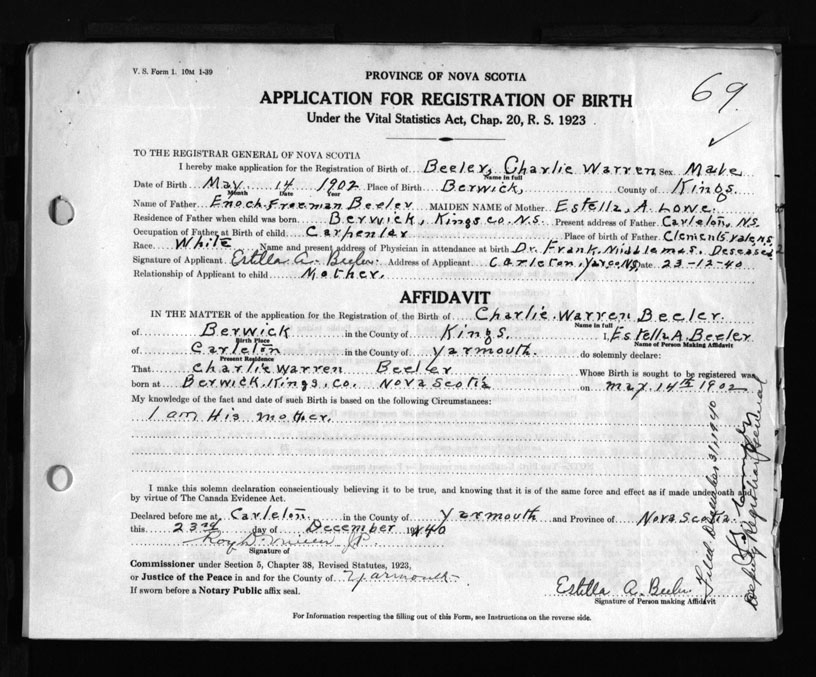 V. S. Form 1. 10M 1-39
69.
PROVINCE OF NOVA SCOTIA
APPLICATION FOR REGISTRATION OF BIRTH
Under the Vital Statistics Act, Chap. 20, R. S. 1923
TO THE REGISTRAR GENERAL OF NOVA SCOTIA
I hereby make application for the Registration of Birth of Beeler, Charlie Warren Sex Male
Name in full
Date of Birth May 14 1902 Place of Birth Berwick, County of Kings.
Month Date Year
Name of Father Enoch Freeman Beeler MAIDEN NAME of Mother Estella, A. Lowe.
Residence of Father when child was born Berwick, Kings Co. N.S. Present address of Father Carleton, N.S.
Occupation of Father at Birth of child Carpenter Place of birth of Father Clements
Race White Name and present address of Physician in attendance at birth Dr. Frank. Middlemas. Deseased
Signature of Applicant Estilla A. Beeler Address of Applicant Carleton, Date 23-12-40
Relationship of Applicant to child Mother.
AFFIDAVIT
IN THE MATTER of the application for the Registration of the Birth of Charlie Warren Beeler.
Name in full
of Berwick in the County of Kings. I, Estella A. Beeler
Birth Place Name of Person Making Affidavit
of Carleton in the County of Yarmouth. do solemnly declare:
Present Residence
That Charlie Warren Beeler Whose Birth is sought to be registered was
born at Berwick, Kings, Co. Nova Scotia on May 14th 1902
My knowledge of the fact and date of such Birth is based on the following Circumstances:
I am His mother.
I make this solemn declaration conscientiously believing it to be true, and knowing that it is of the same force and effect as if made under oath and
by virtue of The Canada Evidence Act.
Declared before me at Carleton. in the County of Yarmouth and Province of Nova Scotia.
this 23rd day of December 1940
J.P.
Signature of
Commissioner under Section 5, Chapter 38, Revised Statutes, 1923,
or Justice of the Peace in and for the County of Yarmouth
If sworn before a Notary Public affix seal.
Estilla A. Beeler
Signature of Person making Affidavit
For Information respecting the filling out of this Form, see Instructions on the reverse side.
Filed December 31, 1940
Deputy Registrar General